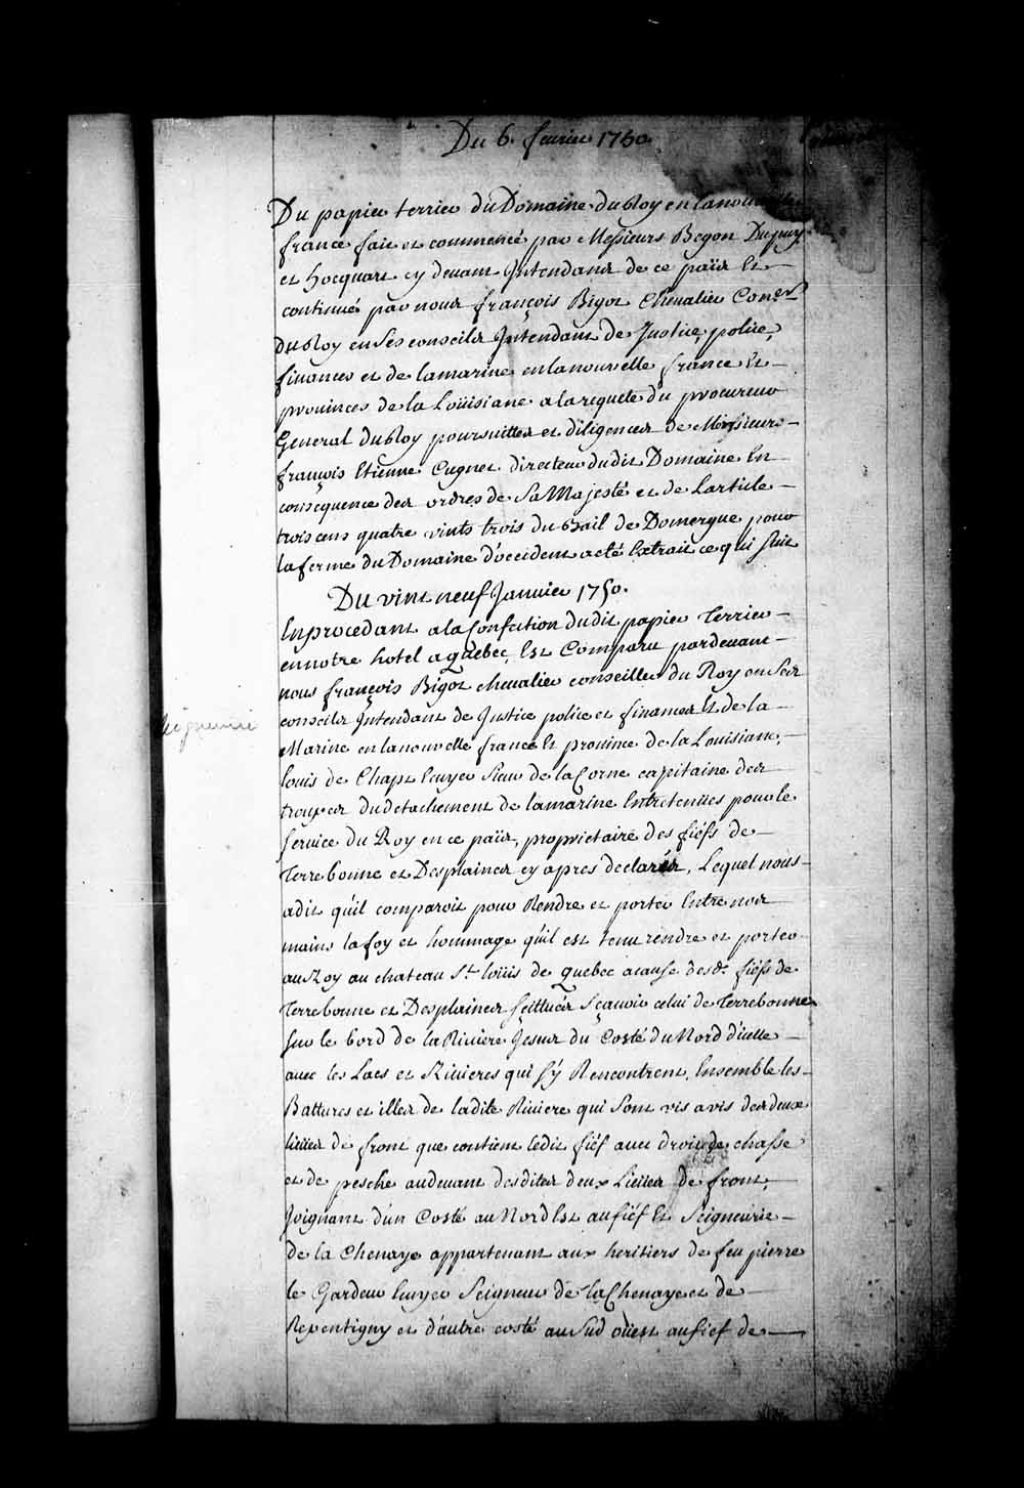 Du 6. feurier 1750.
Du papier terrier du Domaine du Roy en la
france fait et commencé par Messieurs Begon Dupuy
et hocquart cy deuant Intendans de ce païs Et
continué par nous françois Bigot Cheualier Coner
du Roy en Ses conseils Intendant de Justice, police,
finances et de la marine en la nouuelle france Et
prouinces de la Loüisiane a la requete du procureur
General du Roy poursuittes et diligences de Messieurs
françois Etienne Cugnet directeur dudit Domaine En
consequence des ordres de Sa Majesté et de L'article
trois cens quatre vints trois du Bail de Domergue pour
la ferme du Domaine d'occident a eté Extrait ce qui suit
Du vint neuf Januier 1750.
En procedant a la Confection dudit papier Terrier
en notre hotel a Quebec, Est Comparu pardeuant
nous françois Bigot cheualier conseiller du Roy en Ses
conseils Intendant de Justice police et finances Et de la
Marine en la nouuelle france Et prouince de la Louisiane,
Seigneurie
louis de Chapt Ecuyer Sieur de la Corne capitaine des
troupes du detachement de la marine Entretenües pour le
Seruice du Roy en ce païs, proprietaire des fiéfs de
Terrebonne et Desplaines cy apres declarés, Lequel nous
a dit qu'il comparoit pour Rendre et porter Entre nos
mains la foy et hommage qu'il est tenu rendre et porter
au Roy au chateau St. loüis de Quebec a cause desds. fiéfs de
Terrebonne et Desplaines scittués Sçauoir celui de Terrebonne
sur le bord de la Riuiere Jesus du Costé du Nord d'icelle
auec les Lacs et Riuieres qui s'y Rencontrent, Ensemble les
Battures et illes de ladite Riuiere qui Sont vis a vis des deux
lieües de front que contient ledit fiéf auec droit de chasse
et de pesche au deuant desdites deux Lieües de front,
Joignant d'un Costé au Nord Est au fiéf Et Seigneurie
de la Chenaye appartenant aux heritiers de feu pierre
le Gardeur Ecuyer Seigneur de la Chenaye et de
Repentigny et d'autre costé au Sud oüest au fief de